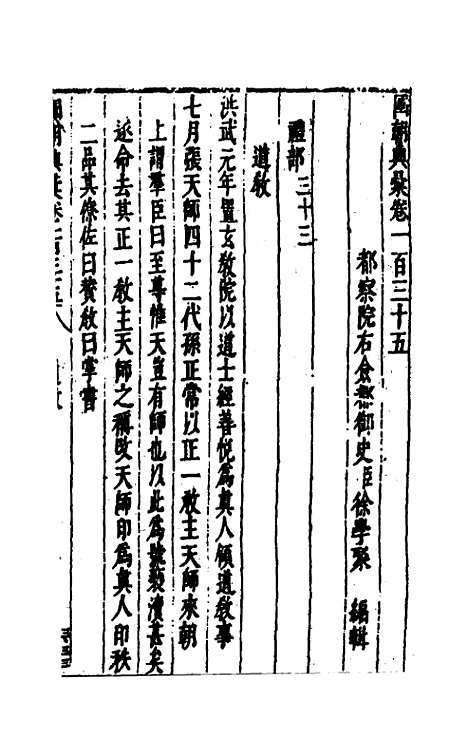 國朝典彙卷一百三十五
都察院右僉都御史臣徐學聚 編輯
禮部 三十三
道教
洪武元年置玄教院以道士經善悅爲眞人領道教事
七月張天師四十二代孫正常以正一教主天師來朝
上謂羣臣曰至尊惟天豈有師也以此爲號褻瀆甚矣
遂命去其正一教主天師之稱改天師印爲眞人印秩
二品其僚佐曰贊教曰掌書